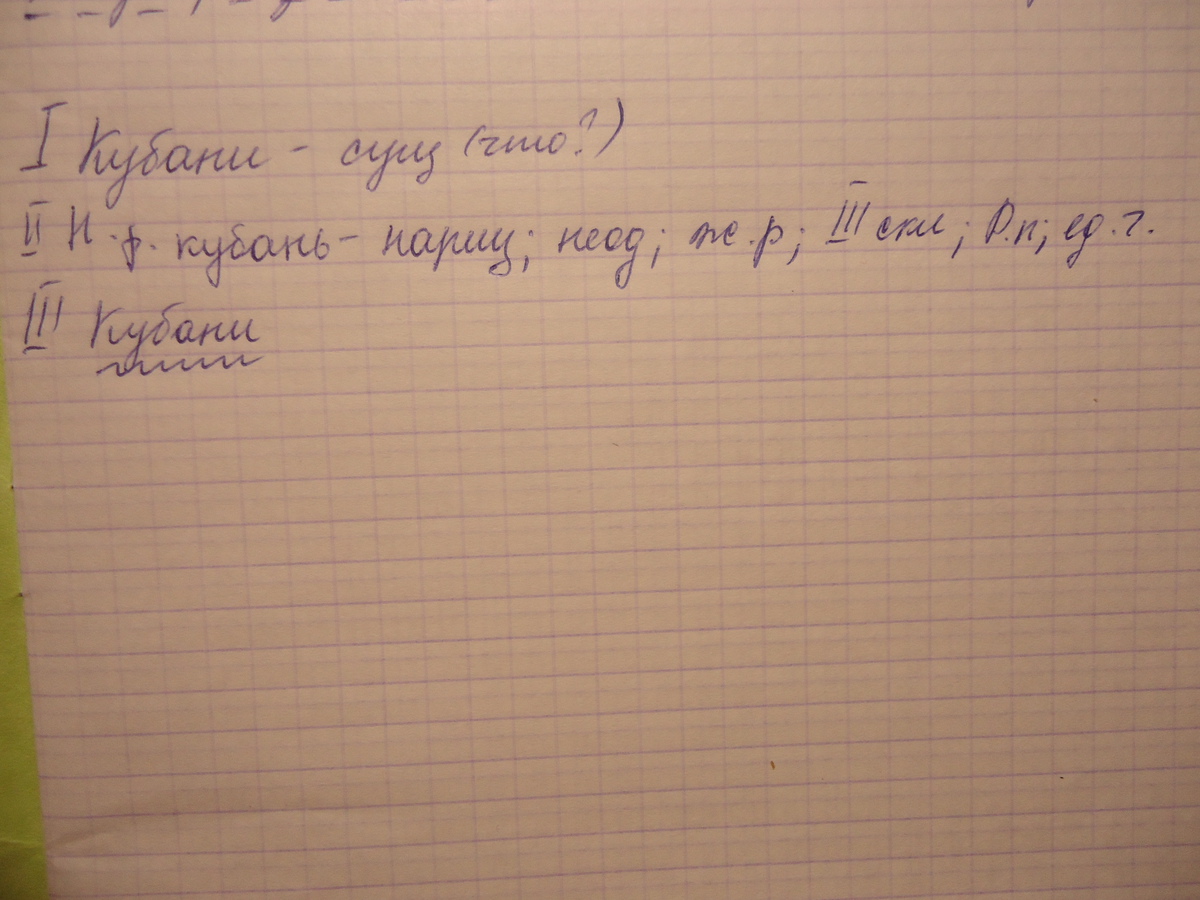 I Кубани - сущ (что?)
II Н.р. кубань - нариц; неод; ж.р; III скл; Р.п; ед.ч.
III Кубани